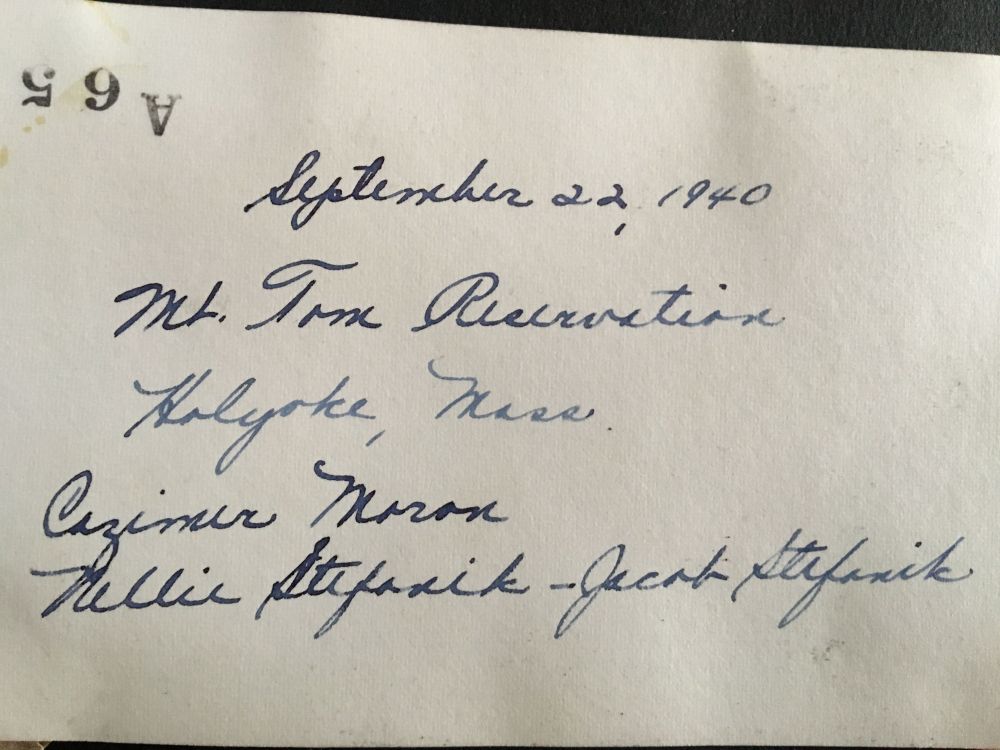 A 65
September 22, 1940
Mt. Tom Reservation
Holyoke, Mass.
Cazimer Moron
Nellie Stefanik - Jacob Stefanik